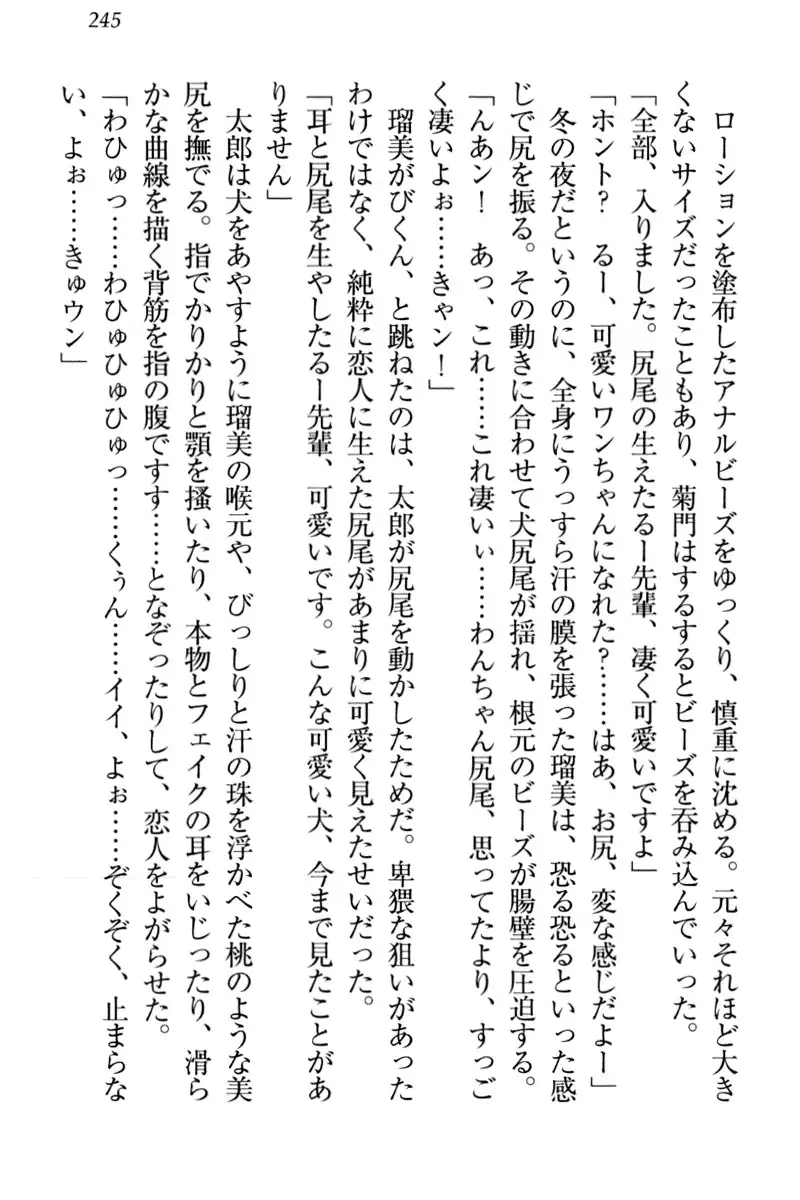 245
ローションを塗布したアナルビーズをゆっくり、慎重に沈める。元々それほど大き
くないサイズだったこともあり、菊門はするするとビーズを呑み込んでいった。
「全部、入りました。尻尾の生えたるー先輩、凄く可愛いですよ」
「ホント？　るー、可愛いワンちゃんになれた？……はあ、お尻、変な感じだよー」
冬の夜だというのに、全身にうっすら汗の膜を張った瑠美は、恐る恐るといった感
じで尻を振る。その動きに合わせて犬尻尾が揺れ、根元のビーズが腸壁を圧迫する。
「んあン！　あっ、これ……これ凄いぃ……わんちゃん尻尾、思ってたより、すっご
く凄いよぉ……きゃン！」
瑠美がびくん、と跳ねたのは、太郎が尻尾を動かしたためだ。卑猥な狙いがあった
わけではなく、純粋に恋人に生えた尻尾があまりに可愛く見えたせいだった。
「耳と尻尾を生やしたるー先輩、可愛いです。こんな可愛い犬、今まで見たことがあ
りません」
太郎は犬をあやすように瑠美の喉元や、びっしりと汗の珠を浮かべた桃のような美
尻を撫でる。指でかりかりと顎を掻いたり、本物とフェイクの耳をいじったり、滑ら
かな曲線を描く背筋を指の腹ですす……となぞったりして、恋人をよがらせた。
「わひゅっ……わひゅひゅひゅっ……くぅん……イイ、よぉ……ぞくぞく、止まらな
い、よぉ……きゅウン」